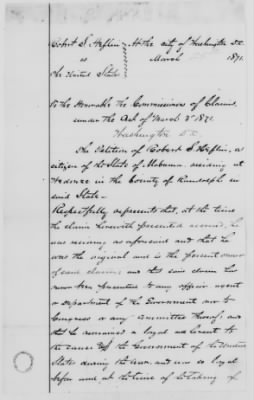 Robert S. Heflin } At the city of Washington D.C.
vs } March 1871.
The United States
To the Honorable the Commissioners of Claims
under the Act of March 3d 1871.
Washington D.C.
The Petition of Robert S. Heflin, a
citizen of the State of Alabama, residing at
in the County of Randolph in
said State—
Respectfully represents that, at the time
the claim herewith presented accrued, he
was as aforesaid and that he
was the original and is the present owner
of said claim; and this said claim has
never been presented to any officer agent
or department of the Government nor to
Congress or any Committee thereof; and
that he remained a loyal adherent to
the cause of the Government of the United
States during the war, and was so loyal
before and at the time of the taking of